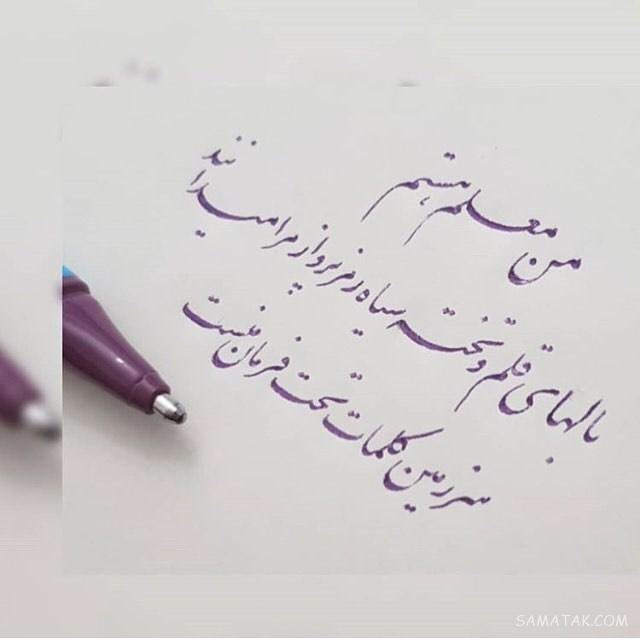 من معلم هستم
بالهای قلم و تخته سیاه رمز پرواز مرا میدانند
سرزمین کلمات تحت فرمان منست
SAMATAK.COM